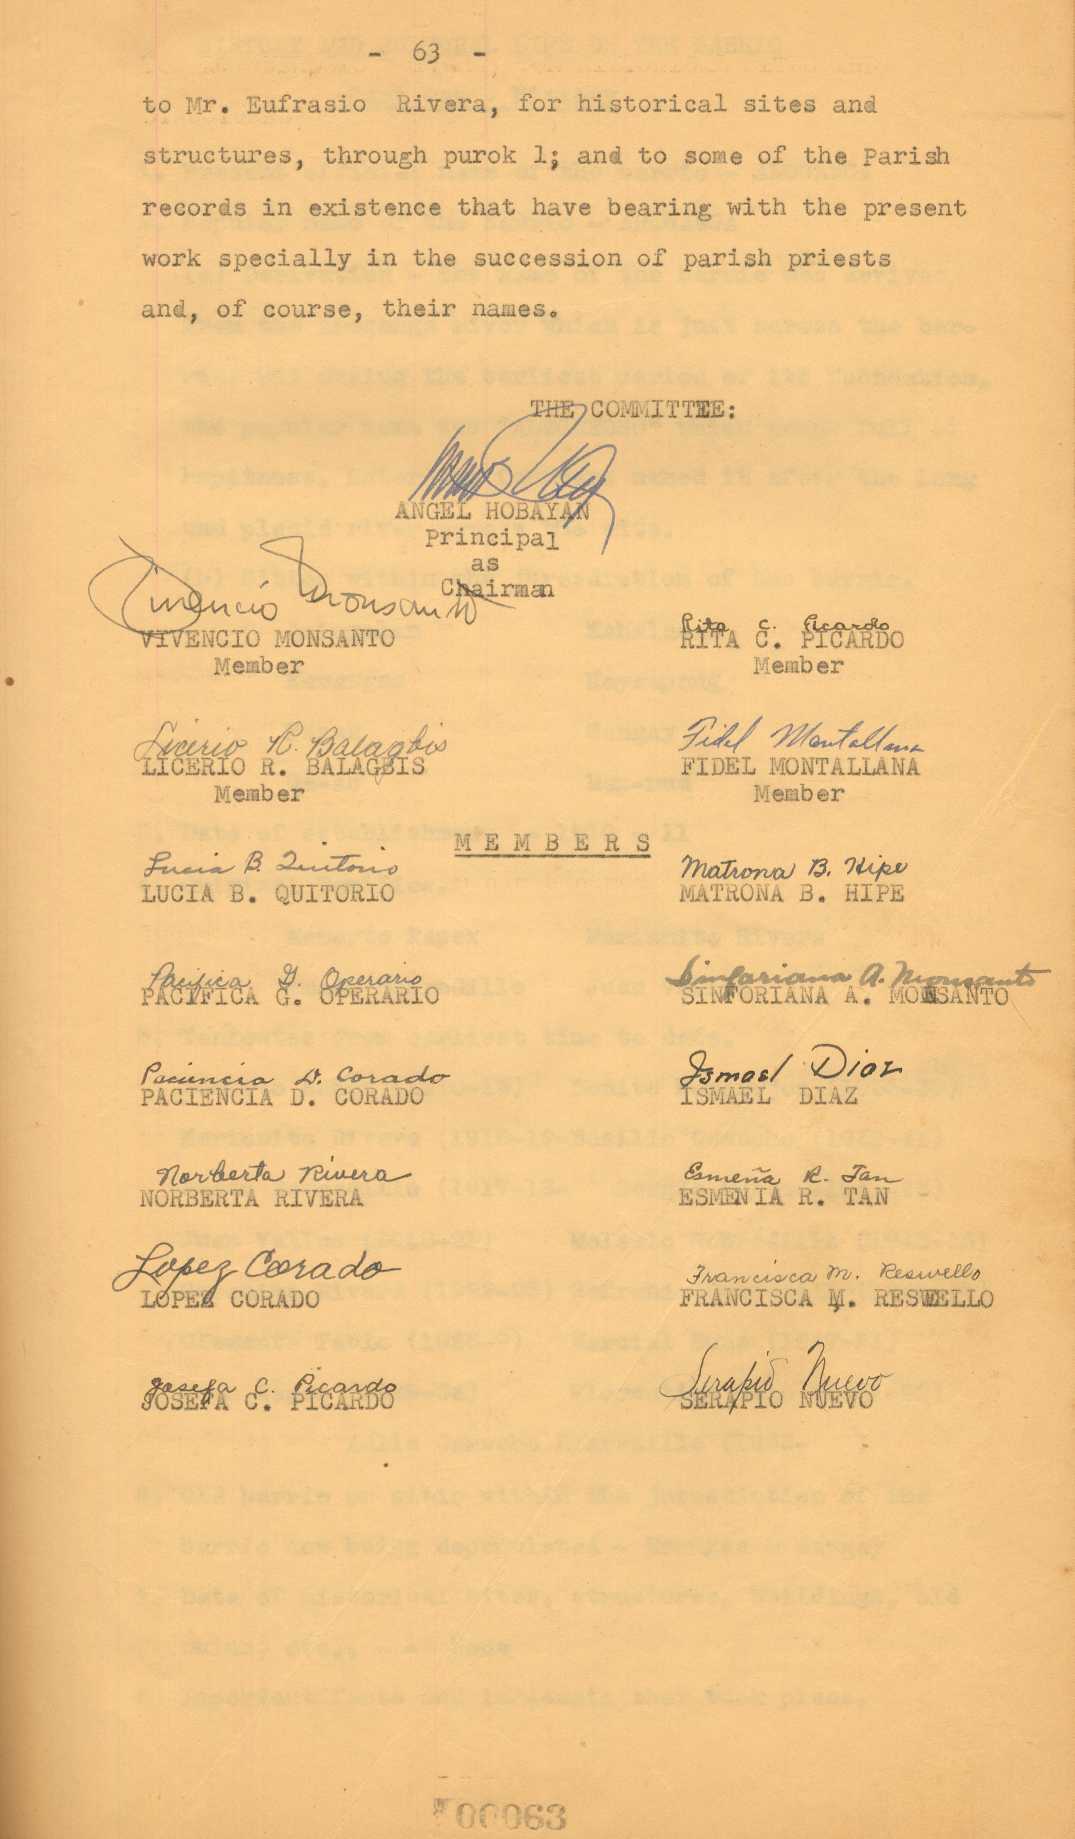 - 63 -
to Mr. Eufrasio Rivera, for historical sites and
structures, through purok 1; and to some of the Parish
records in existence that have bearing with the present
work specially in the succession of parish priests
and, of course, their names.
THE COMMITTEE:
ANGEL HOBAYAN
Principal
as
Chairman
Vivencio Monsanto
VIVENCIO MONSANTO
Member
Rita C. Picardo
RITA C. PICARDO
Member
Licerio R. Balagbis
LICERIO R. BALAGBIS
Member
Fidel Montallana
FIDEL MONTALLANA
Member
MEMBERS
Lucia B. Quitorio
LUCIA B. QUITORIO
Matrona B. Hipe
MATRONA B. HIPE
Pacifica G. Operario
PACIFICA G. OPERARIO
Sinforiana A. Monsanto
SINFORIANA A. MONSANTO
Paciencia D. Corado
PACIENCIA D. CORADO
Ismael Diaz
ISMAEL DIAZ
Norberta Rivera
NORBERTA RIVERA
Esmeña R. Tan
ESMENIA R. TAN
Lopez Corado
LOPEZ CORADO
Francisca M. Reswello
FRANCISCA M. RESWELLO
Josefa C. Picardo
JOSEFA C. PICARDO
Serapio Nuevo
SERAPIO NUEVO
00063